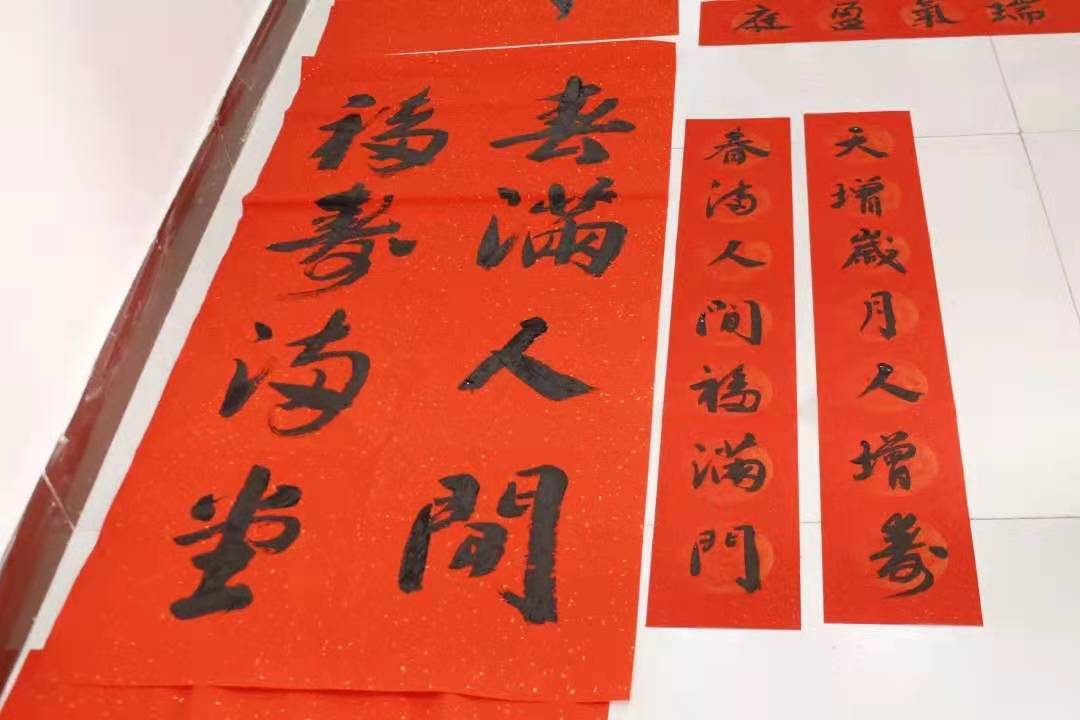 瑞氣盈庭
天增歲月人增壽
春滿人間福滿門
春滿人間
福壽滿堂